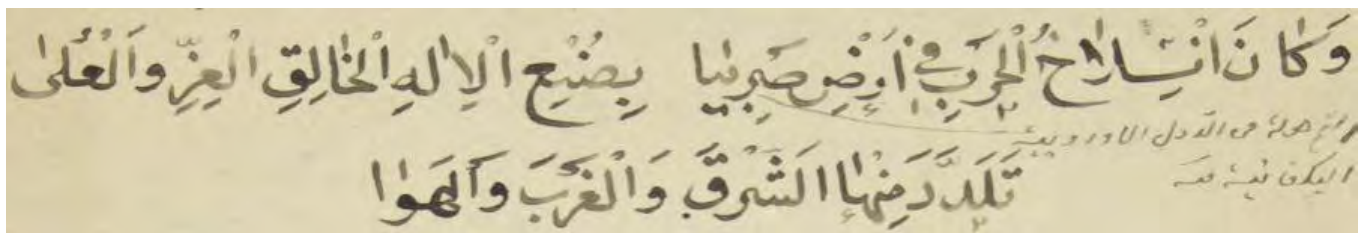 وَكَانَ الْحَرْبِ فِي اَرْضِ صَرْبِيَا بِصُنْعِ الْاِلٰهِ الْخَالِقِ الْعِزِّ وَالْعُلىٰ
من الدول الاوروبية
تَلَبَّدَ مِنْهَا الشَّرْقَ وَالْغَرْبَ وَالْهَوَا